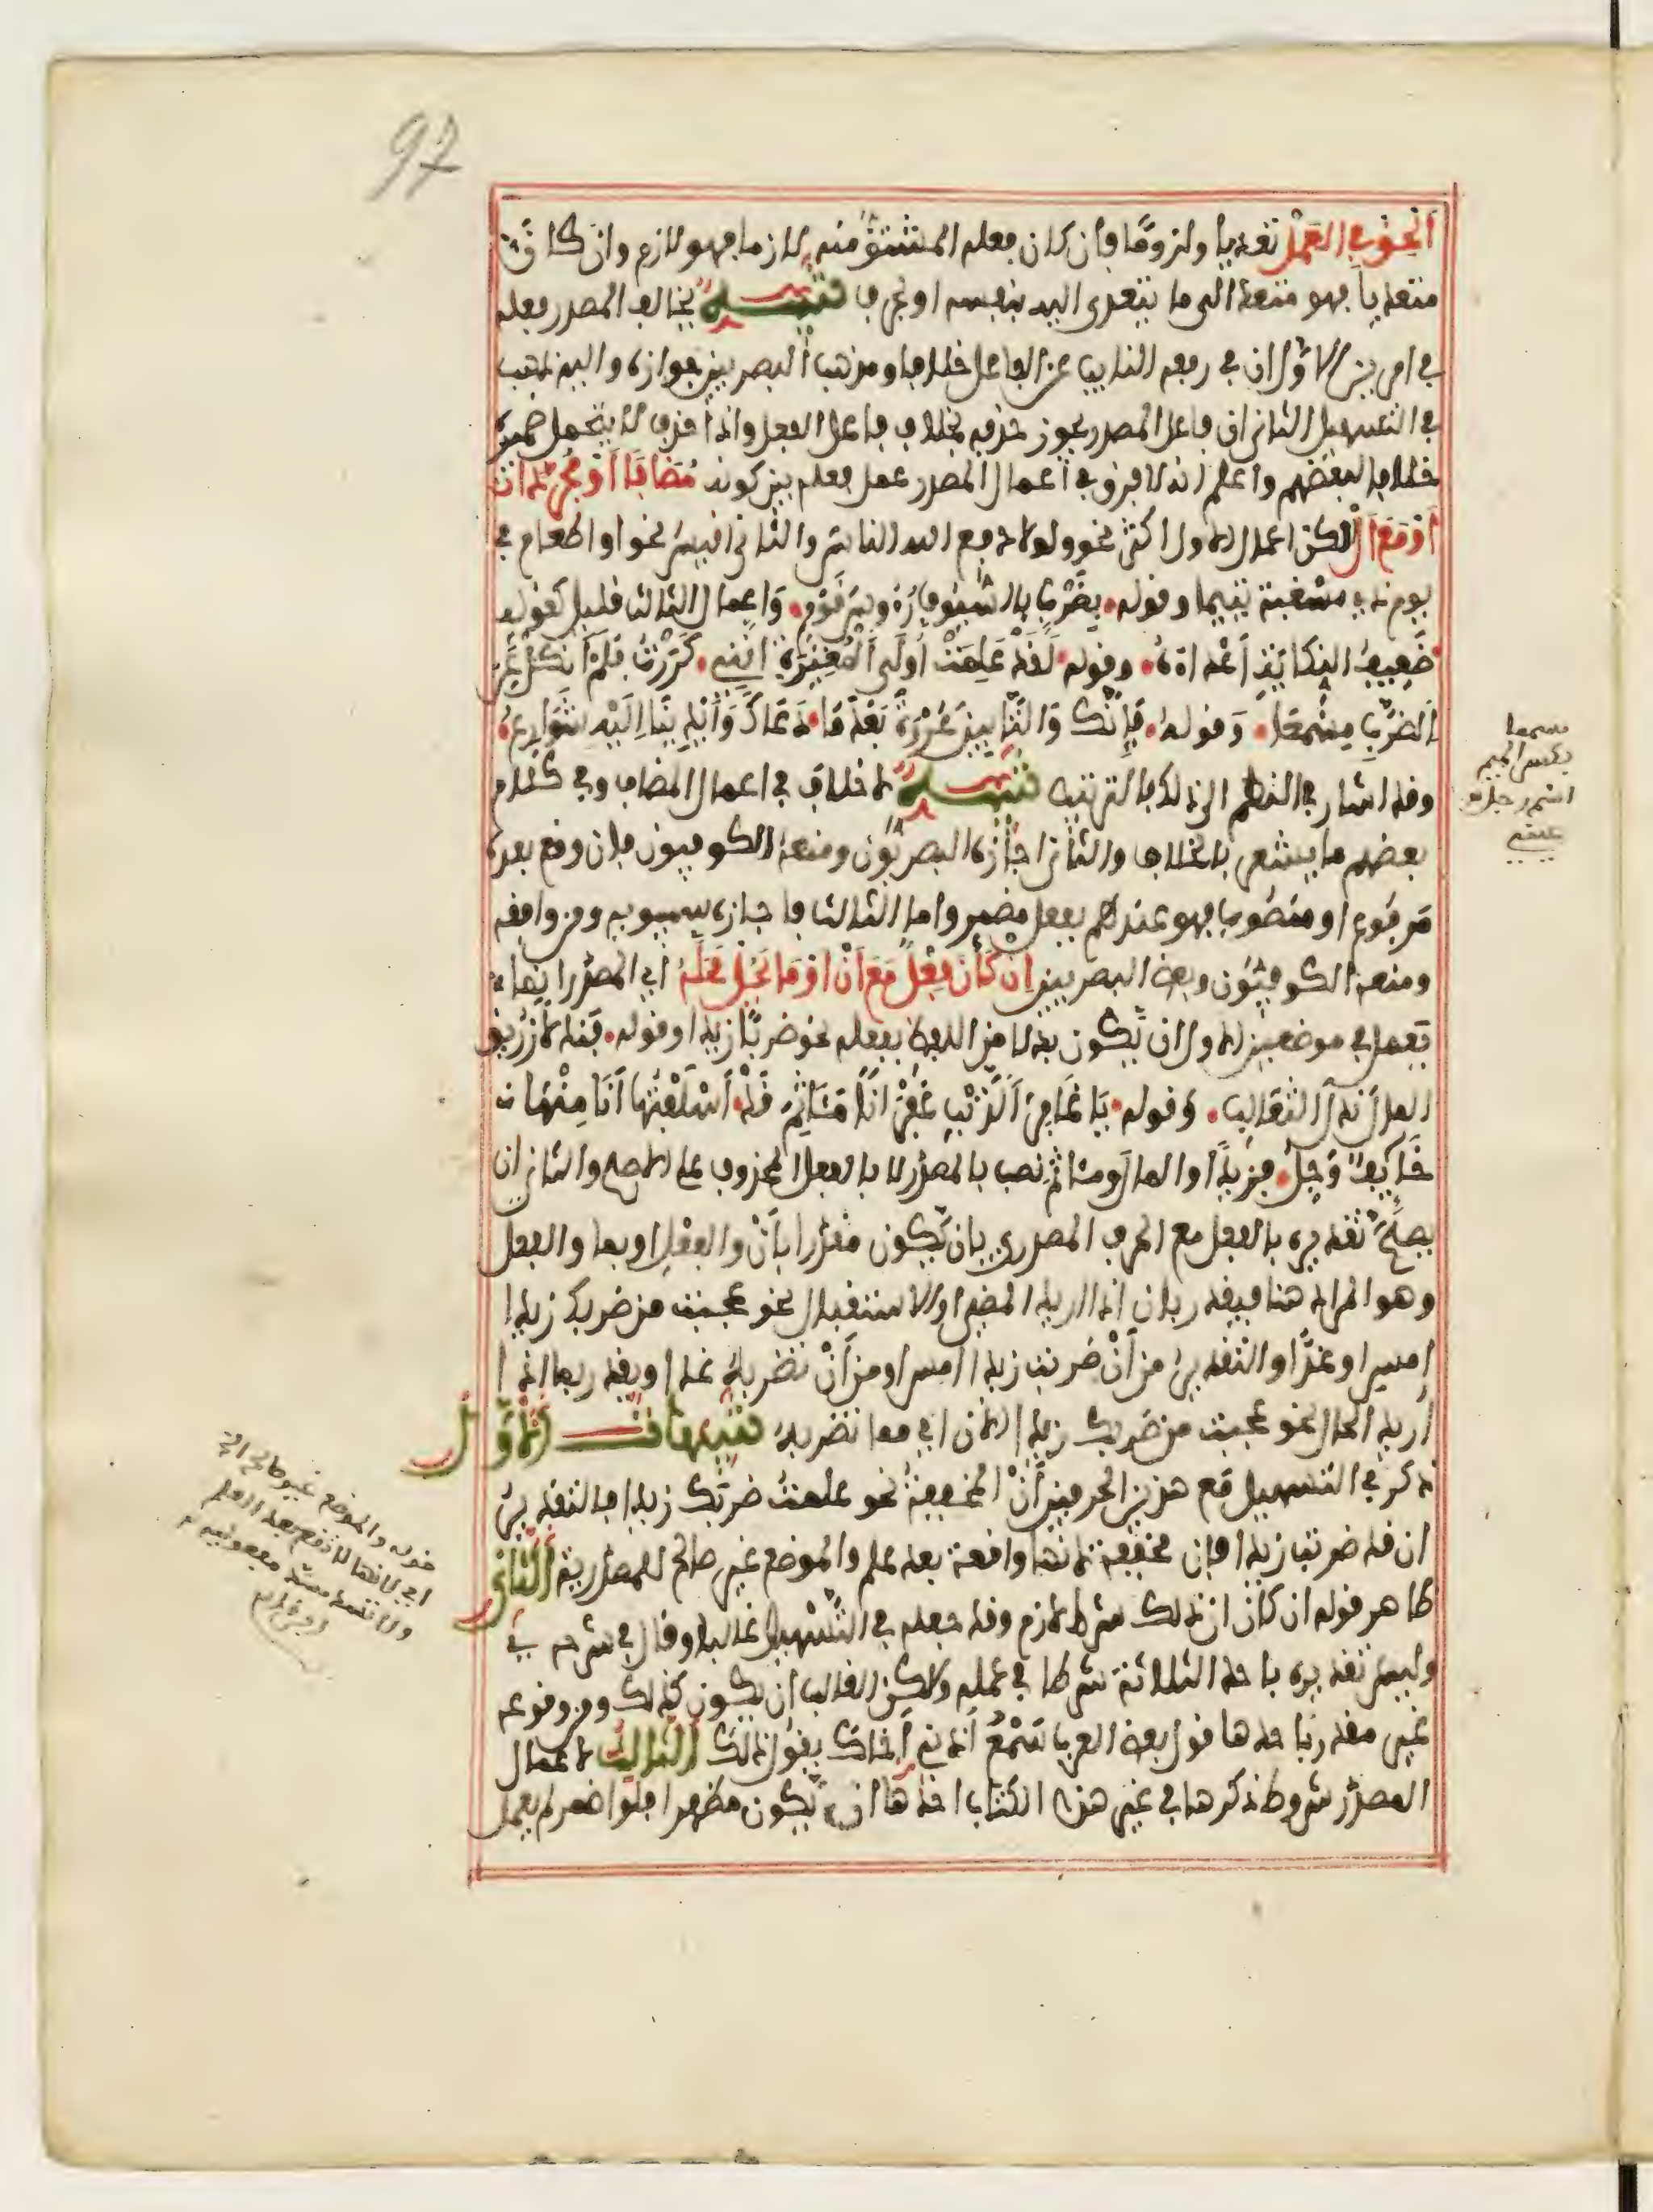 97
ألحق في العمل تعديا ولزوما فإن كان فعله المشتق منه لازما فهو لازم وان كان
متعديا فهو متعد الى ما يتعدى اليه بنفسه او بحرف تنبيه يخالف المصدر فعله
في امرين الاول ان في رفعه النايب عن الفاعل خلافا ومذهب البصريين جوازه واليه ذهب
في التسهيل الثاني ان فاعل المصدر يجوز حذفه بخلاف فاعل الفعل واذا حذف لا يتحمل ضميره
خلافا لبعضهم واعلم انه لا فرق في أعمال المصدر عمل فعله بين كونه مضافا أو مجردا
أو مع أل لكن اعمال الاول اكثر نحو ولولا دفع الله الناس والثاني اقيس نحو او اطعام في
يوم ذي مسغبة يتيما وقوله بضرب بالسيوف رؤوس قوم واعمال الثالث قليل كقوله
ضعيف النكاية أعداءه وقوله لقد علمت أولى المغيرة انني كررت فلم أنكل عن
الضرب مسمعا وقوله فإنك والتأبين عروة بعدما دعاك وأيدينا إليه شوارع
وقد اشار في النظم الى ذلك بالترتيب تنبيه لا خلاف في اعمال المضاف وفي كلام
بعضهم ما يشعر بالخلاف والثاني اجازه البصريون ومنعه الكوفيون فإن وقع بعده
مرفوع او منصوب فهو عندهم بفعل مضمر واما الثالث فاجازه سيبويه ومن وافقه
ومنعه الكوفيون وبعض البصريين إن كان فعل مع أن او ما يحل محله أي المصدر انما
يعمل في موضعين الاول ان يكون بدلا من اللفظ بفعله نحو ضربا زيدا وقوله فندلا زريق
المال ندل الثعالب وقوله يا قابل التوب غفرانا مئاثم قد أسلفتها أنا منها
خائف وجل فزيدا والمال ومئاثم نصب بالمصدر لا بالفعل المحذوف على الاصح والثاني ان
يصح تقديره بالفعل مع الحرف المصدري بان يكون مقدرا بأن والفعل او بما والفعل
وهو المراد هنا فيقدر بان اذا اريد المضي او الاستقبال نحو عجبت من ضربك زيدا
امس او غدا والتقدير من أن ضربت زيدا امس او من أن تضربه غدا ويقدر بما اذا
أريد الحال نحو عجبت من ضربك زيدا الان اي مما تضربه تنبيهات الأول
ذكر في التسهيل مع هذين الحرفين أن المخففة نحو علمت ضربك زيدا فالتقدير
ان قد ضربت زيدا فإن مخففة لانها واقعة بعد علم والموضع غير صالح للمصدرية الثاني
ظاهر قوله ان كان ان ذلك شرط لازم وقد جعله في التسهيل غالبا وقال في شرحه
وليس تقديره باحد الثلاثة شرطا في عمله ولكن الغالب ان يكون كذلك ومن وقوعه
غير مقدر باحدها قول بعض العرب سمع أذني أخاك يقول ذلك الثالث لاعمال
المصدر شروط ذكرها في غير هذا الكتاب احدها ان يكون مظهرا فلو اضمر لم يعمل
مسمعا
بكسر الميم
اسم رجل
قوله والموضع غير صالح الخ
اي لانها لا تقع بعد العلم
ولا تسد مسد مفعوليه